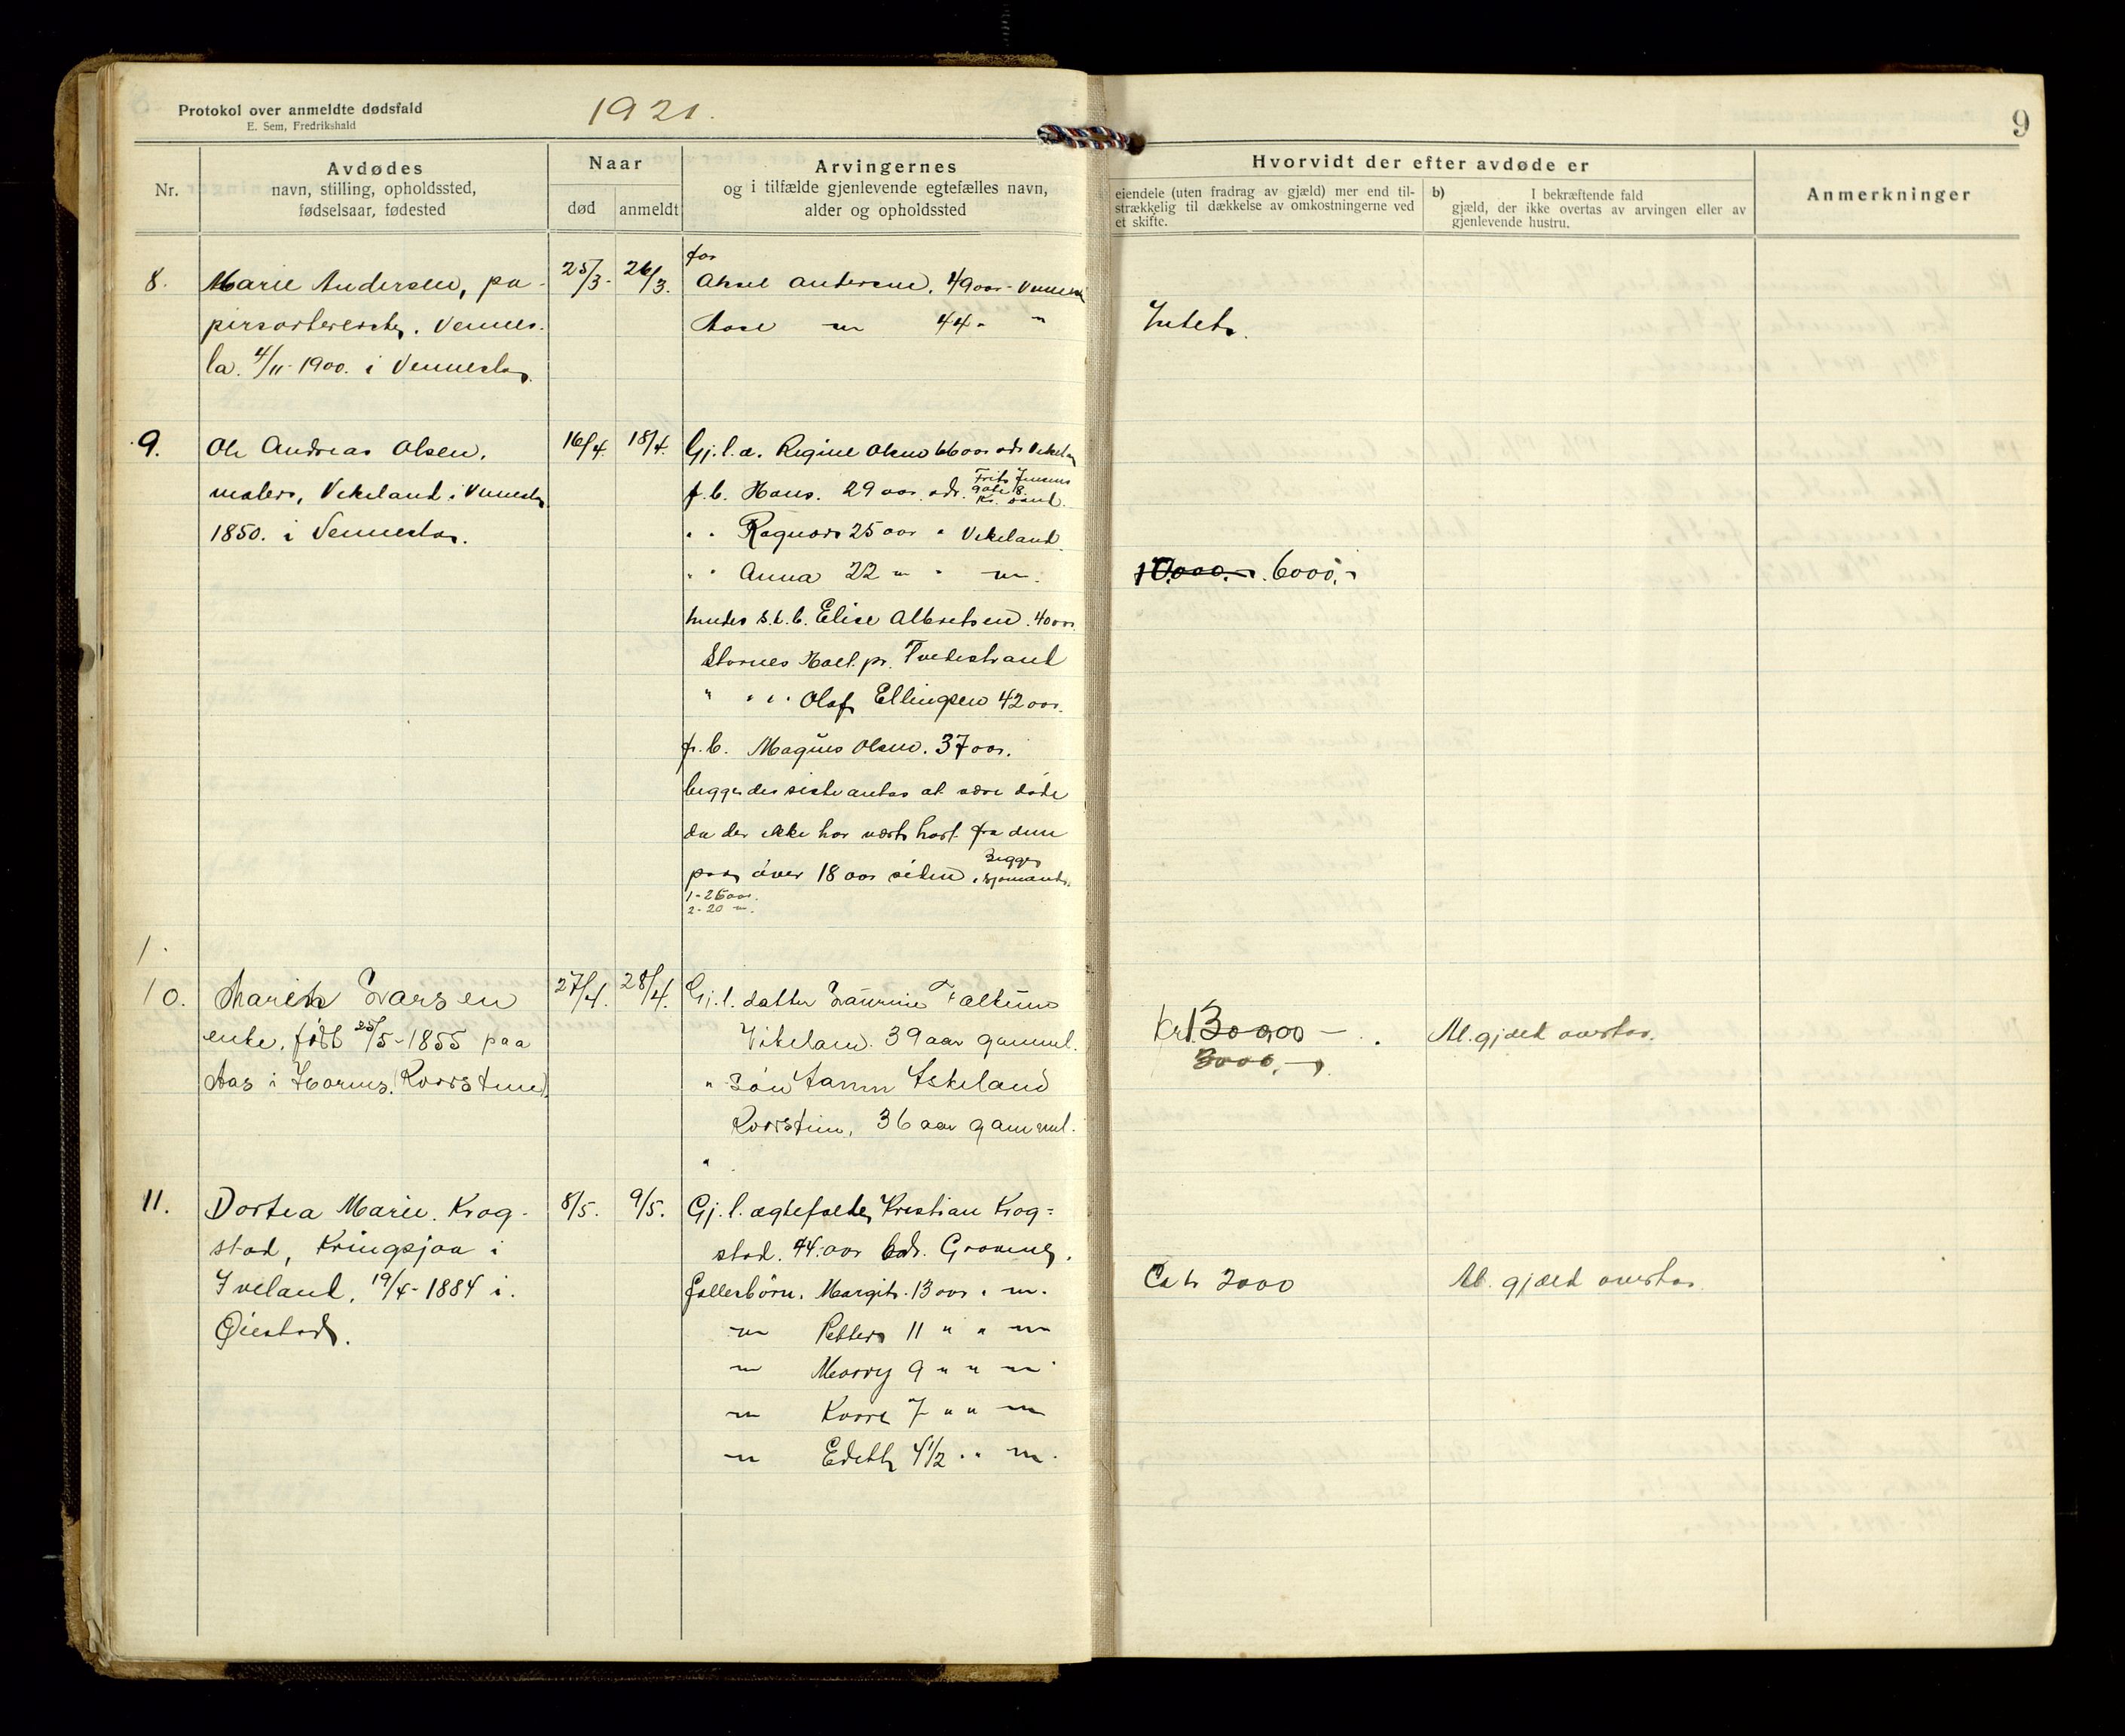 Protokol over anmeldte dødsfald
E. Sem, Fredrikshald
1921.
9
Nr.
Avdødes
navn, stilling, opholdssted,
fødselsaar, fødested
Naar
død
anmeldt
Arvingernes
og i tilfælde gjenlevende egtefælles navn,
alder og opholdssted
Hvorvidt der efter avdøde er
eiendele (uten fradrag av gjæld) mer end til-
strækkelig til dækkelse av omkostningerne ved
et skifte.
b) I bekræftende fald
gjæld, der ikke overtas av arvingen eller av
gjenlevende hustru.
Anmerkninger
8.
Marie Andersen, pa-
pirsortererske, Vennes-
la. 4/11-1900. i Vennesla.
25/3-
26/3.
for
Aksel Andersen. 49 aar - Vennesla
Aase 〃 44 〃 〃
Intet.
9.
Ole Andreas Olsen.
maler, Vikeland i Vennesla
1850. i Vennesla.
16/4.
18/4.
Gj. l. æ. Regine Olsen 66 aar adr Vikeland
f. b. Hans. 29 aar. adr. Frits Jensens
gate 8.
Kr. sand.
" " Ragnar 25 aar " Vikeland.
" " Anna 22 〃 " 〃.
hendes s.k.b. Elise Albretsen. 40 aar.
Stornes Holt pr. Tvedestrand
" " " " Olaf Ellingsen 42 aar.
f. b. Magnus Olsen. 37 aar.
begge de siste antas at være døde
da der ikke har vært hørt fra dem
paa over 18 aar siden. Begge
sjømænd.
1 - 25 aar.
2 - 20 〃.
10.000.- 6000,-
1.
10.
Maren Larsen
enke, født 25/5-1855 paa
Aas i Hornes. (Roorstun).
27/4.
28/4.
Gj. l. datter Laurine
Vikeland. 39 aar gammel.
" Søn Iskeland
36 aar gammel.
"
kr 13000 -
3000,-
Al. gjæld overtas.
11.
Dortea Marie. Krog-
stad, Kringsjaa i
Iveland. 19/4-1884 i.
Øiestad.
8/5.
9/5.
Gj. l. ægtefælle, Kristian Krog=
stad. 44. aar adr.
fællesbørn. Margit. 13 aar. " 〃.
〃 Petter 11 " " 〃
〃 Marry 9 " " 〃
〃 Kaare 7 " " 〃
〃 Edith 4 1/2 " " 〃.
Ca kr 2000
Al. gjæld overtas.